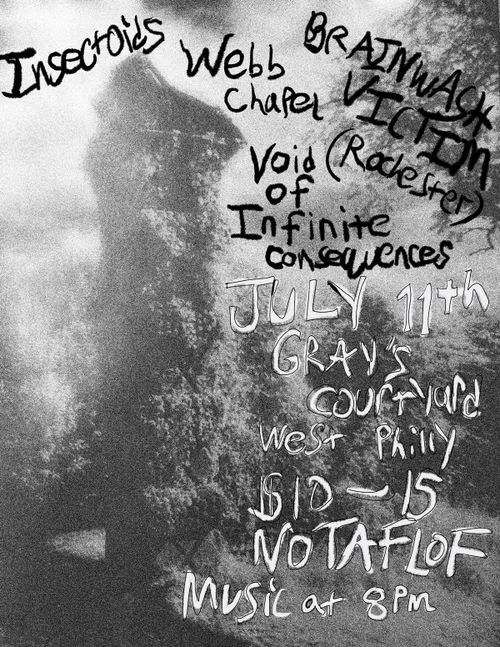 Insectoids
Webb
Chapel
BRAINWACK
VICTIM
(Rochester)
Void
of
Infinite
consequences
JULY 11th
GRAY's
courtyard
West Philly
$10 - 15
NOTAFLOF
Music at 8pm